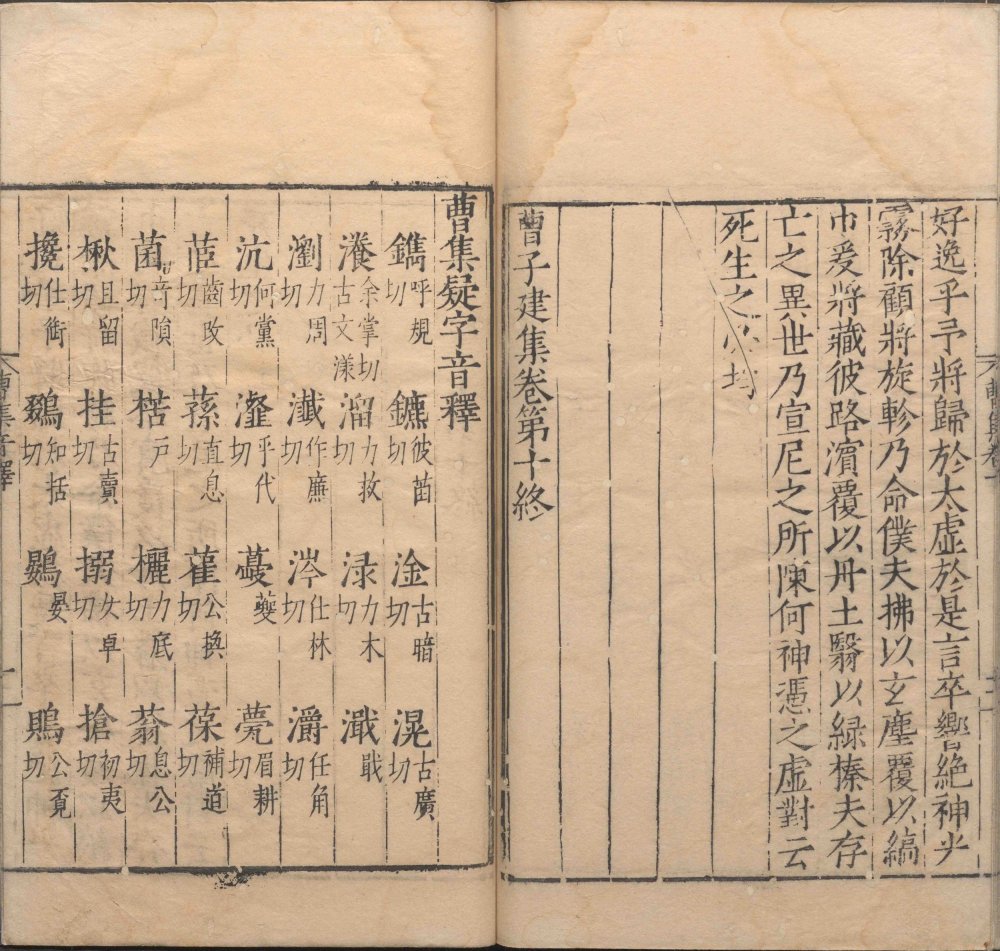 好逸乎予將歸於太虛於是言卒響絕神光
霧除顧將旋軫乃命僕夫拂以玄塵覆以縞
巾爰將藏彼路濱覆以丹土翳以綠榛夫存
亡之異世乃宣尼之所陳何神憑之虛對云
死生之必均
曹子建集卷第十終
曹集疑字音釋
鐫呼規切 鑣彼苗切 淦古暗切 滉古廣切
瀁余掌切古文漾 溜力救切 淥力木切 濈戢
瀏力周切 瀸作廉切 涔仕林切 灂任角切
沆何黨切 瀣乎代切 蘷夔 甍眉耕切
茝齒改切 蓀直息切 雚公換切 葆補道切
菌奇隕切 楛戶 欐力底切 蓊息公切
楸且留切 挂古賣切 搦女卓切 搶初夷切
攙仕銜切 鵽知括切 鷃晏 鵙公覔切
曹集音釋